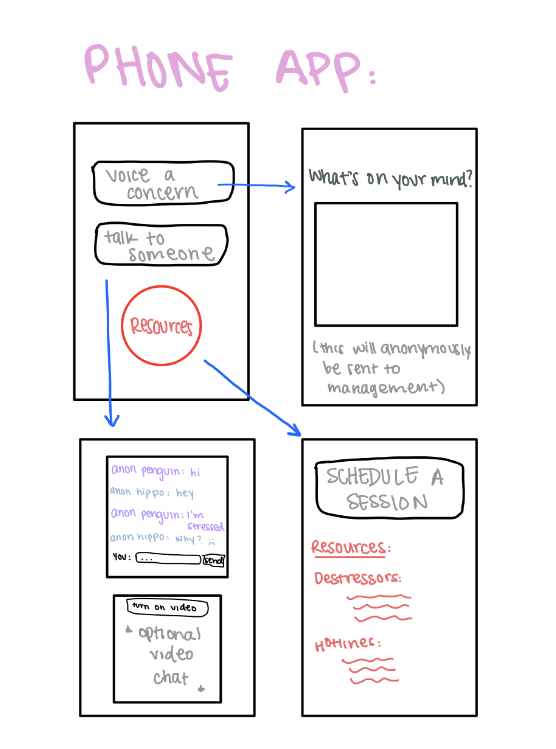 PHONE APP:
voice a
concern
talk to
someone
Resources
What's on your mind?
(this will anonymously
be sent to
management)
anon penguin: hi
anon hippo: hey
anon penguin: I'm
stressed
anon hippo: why? :(
You: ... send
turn on video
* optional
video
chat *
SCHEDULE A
SESSION
Resources:
Destressors:
Hotlines: